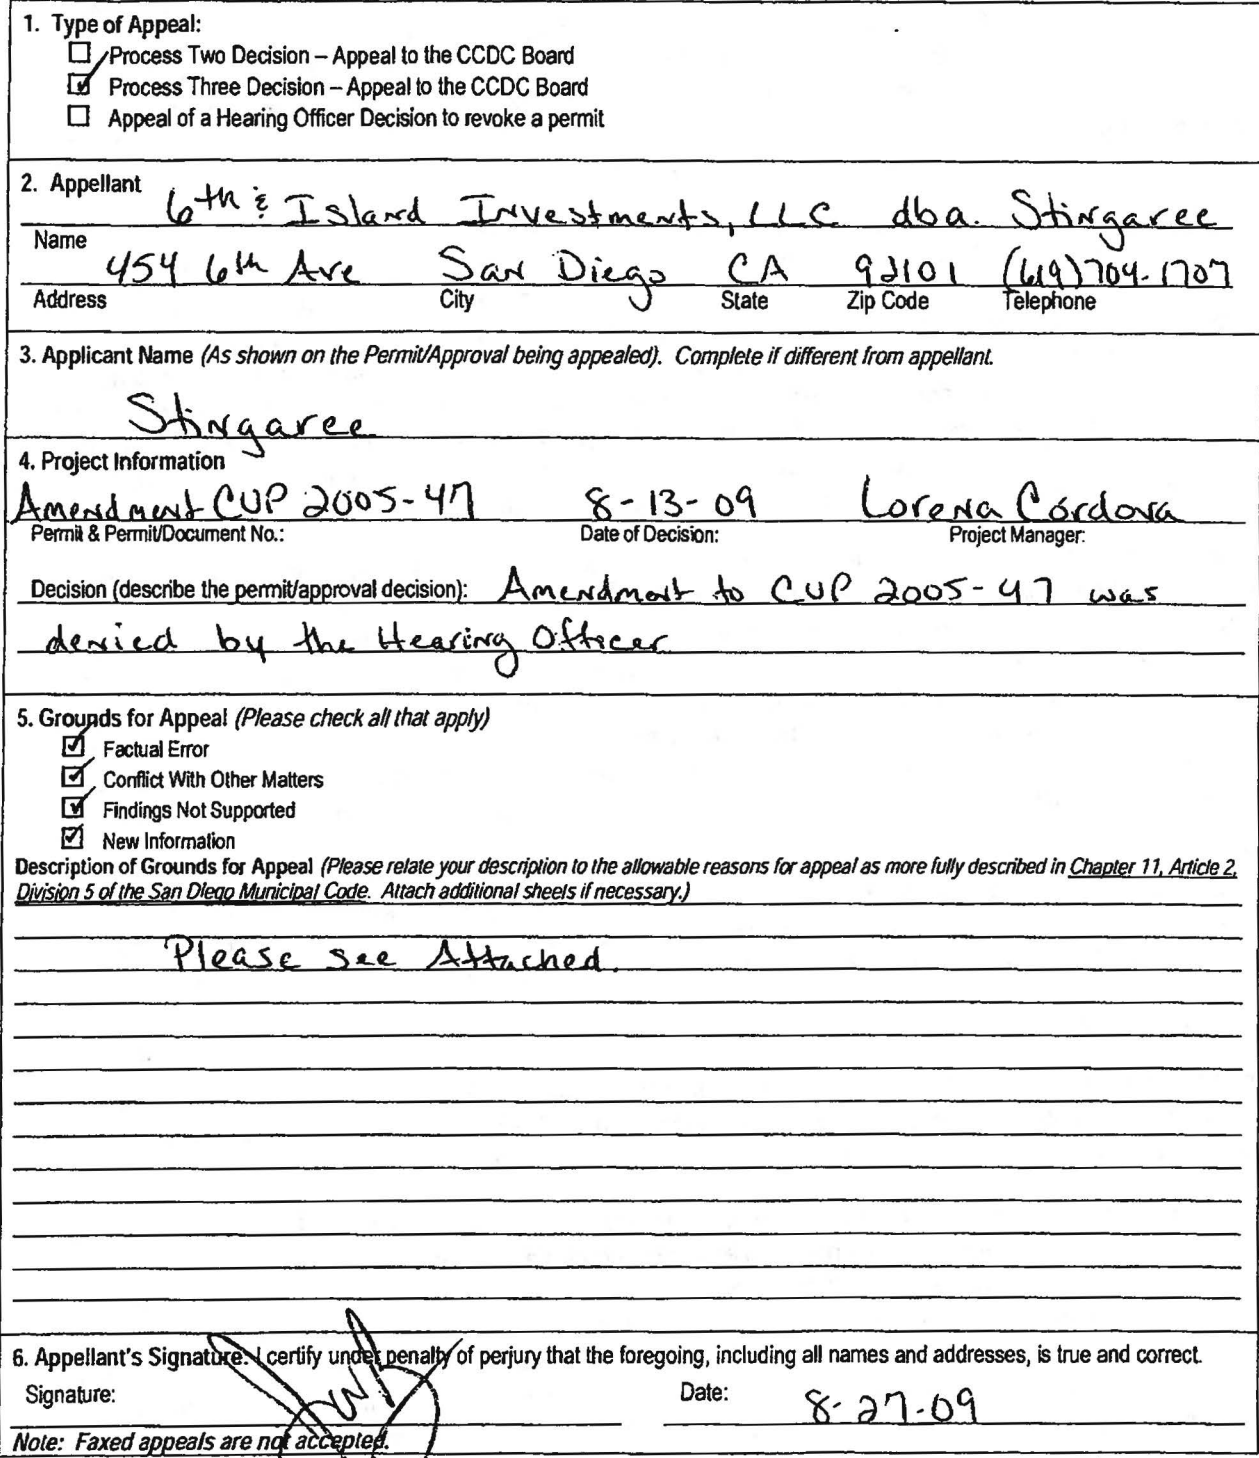 1. Type of Appeal:
☐ Process Two Decision – Appeal to the CCDC Board
☑ Process Three Decision – Appeal to the CCDC Board
☐ Appeal of a Hearing Officer Decision to revoke a permit
2. Appellant
6th & Island Investments, LLC dba. Stingaree
Name
454 6th Ave San Diego CA 92101 (619)704-1707
Address City State Zip Code Telephone
3. Applicant Name (As shown on the Permit/Approval being appealed). Complete if different from appellant.
Stingaree
4. Project Information
Amendment CUP 2005-47 8-13-09 Lorena Córdova
Permit & Permit/Document No.: Date of Decision: Project Manager:
Decision (describe the permit/approval decision): Amendment to CUP 2005-47 was
denied by the Hearing Officer
5. Grounds for Appeal (Please check all that apply)
☑ Factual Error
☑ Conflict With Other Matters
☑ Findings Not Supported
☑ New Information
Description of Grounds for Appeal (Please relate your description to the allowable reasons for appeal as more fully described in Chapter 11, Article 2,
Division 5 of the San Diego Municipal Code. Attach additional sheets if necessary.)
Please see Attached.
6. Appellant's Signature: I certify under penalty of perjury that the foregoing, including all names and addresses, is true and correct.
Signature: Date: 8-27-09
Note: Faxed appeals are not accepted.